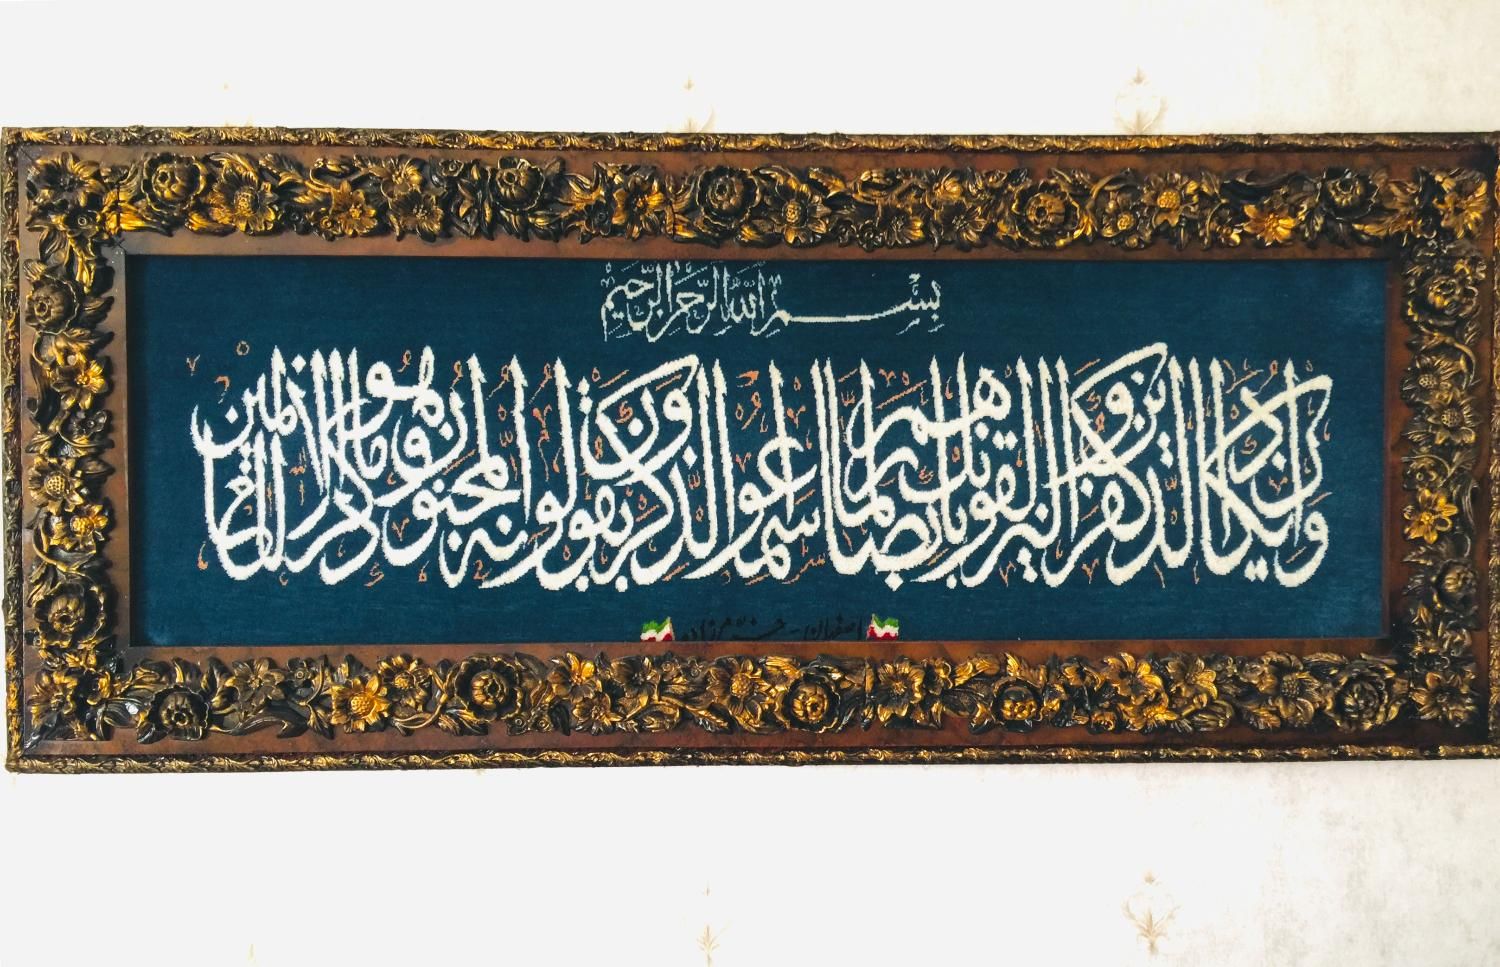 بِسْمِ اللهِ الرَّحْمنِ الرَّحِیْمِ
وَاِنْ یَکادُ الَّذینَ کَفَروُا لَیُزْلِقوُنَکَ بِاَبْصارِهِمْ لَمّا سَمِعوُا الذِّکْرَ وَ یَقوُلوُنَ اِنَّهُ لَمَجْنوُنٌ وَ ما هُوَ اِلّا ذِکْرٌ لِلْعالَمینَ
اصفهان -